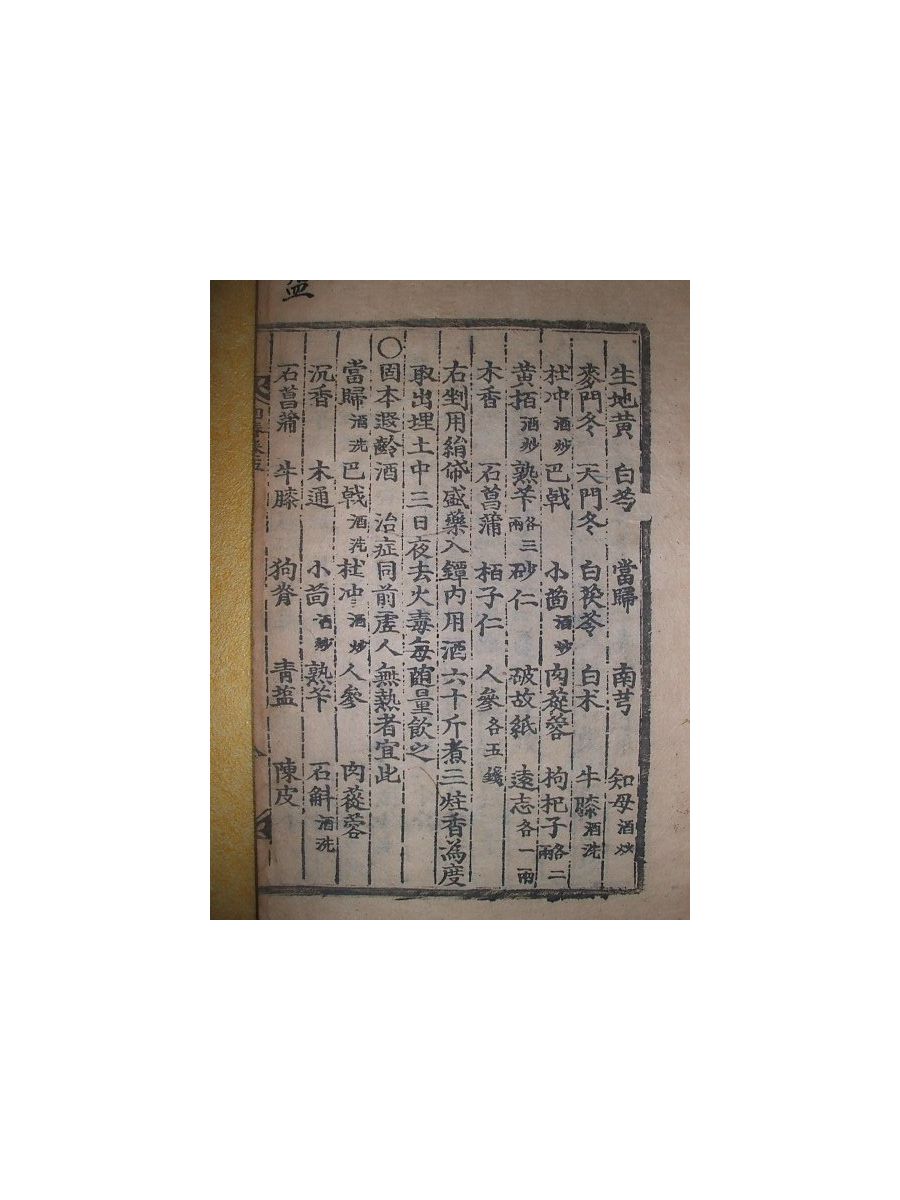 生地黃 白芍 當歸 南芎 知母酒炒
麥門冬 天門冬 白茯苓 白朮 牛膝酒洗
杜冲酒炒 巴戟 小茴酒炒 肉蓯蓉 枸杞子各二兩
黄栢酒炒 熟芐各三兩 砂仁 破故紙 遠志各一兩
木香 石菖蒲 栢子仁 人參各五錢
右剉用絹俗盛藥入鐔內用酒六十斤煮三炷香為度
取出埋土中三日夜去火毒每随量飲之
〇固本遐齡酒 治症同前虛人無熱者宜此
當歸酒洗 巴戟酒洗 杜冲酒炒 人參 肉蓯蓉
沉香 木通 小茴酒炒 熟芐 石斛酒洗
石菖蒲 牛膝 狗脊 青盐 陳皮